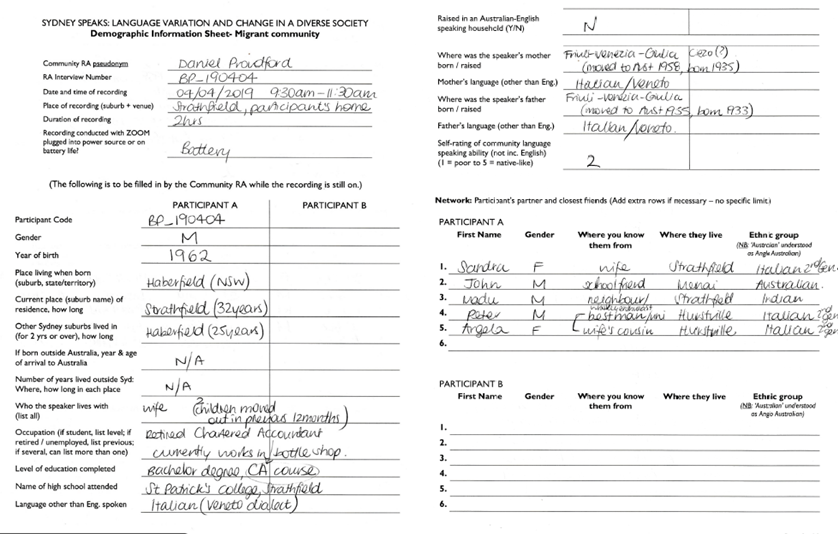 SYDNEY SPEAKS: LANGUAGE VARIATION AND CHANGE IN A DIVERSE SOCIETY
Demographic Information Sheet- Migrant community
Community RA pseudonym Daniel Proudford
RA Interview Number BP_190404
Date and time of recording 04/04/2019 9:30am-11:30am
Place of recording (suburb + venue) Strathfield, participant's home
Duration of recording 2hrs
Recording conducted with ZOOM
plugged into power source or on
battery life? Battery
(The following is to be filled in by the Community RA while the recording is still on.)
PARTICIPANT A PARTICIPANT B
Participant Code BP_190404
Gender M
Year of birth 1962
Place living when born
(suburb, state/territory) Haberfield (NSW)
Current place (suburb name) of
residence, how long Strathfield (32years)
Other Sydney suburbs lived in
(for 2 yrs or over), how long Haberfield (25years)
If born outside Australia, year & age
of arrival to Australia N/A
Number of years lived outside Syd:
Where, how long in each place N/A
Who the speaker lives with wife (2 children moved
(list all) out in previous 12months)
Occupation (if student, list level; if Retired Chartered Accountant
retired / unemployed, list previous;
if several, can list more than one) currently works in bottle shop.
Level of education completed Bachelor degree, CA course
Name of high school attended St Patrick's college, Strathfield
Language other than Eng. spoken Italian (Veneto dialect)
Raised in an Australian-English
speaking household (Y/N) N
Where was the speaker's mother Friuli-Venezia-Giulia
born / raised (moved to Aust 1958, born 1935)
Mother's language (other than Eng.) Italian/Veneto
Where was the speaker's father Friuli-Venezia-Giulia
born / raised (moved to Aust 1955, born 1933)
Father's language (other than Eng.) Italian/Veneto.
Self-rating of community language
speaking ability (not inc. English)
(1 = poor to 5 = native-like) 2
Network: Participant's partner and closest friends (Add extra rows if necessary – no specific limit.)
PARTICIPANT A
First Name Gender Where you know Where they live Ethnic group
them from (NB: 'Australian' understood
as Anglo Australian)
1. Sandra F wife Strathfield Italian 2nd Gen
2. John M school friend Menai Australian.
3. Vadu M neighbour/ Strathfield Indian
4. Peter M Hurstville Italian 2nd Gen
5. Angela F wife's cousin Hurstville Italian 2nd Gen
6.
PARTICIPANT B
First Name Gender Where you know Where they live Ethnic group
them from (NB: 'Australian' understood
as Anglo Australian)
1.
2.
3.
4.
5.
6.